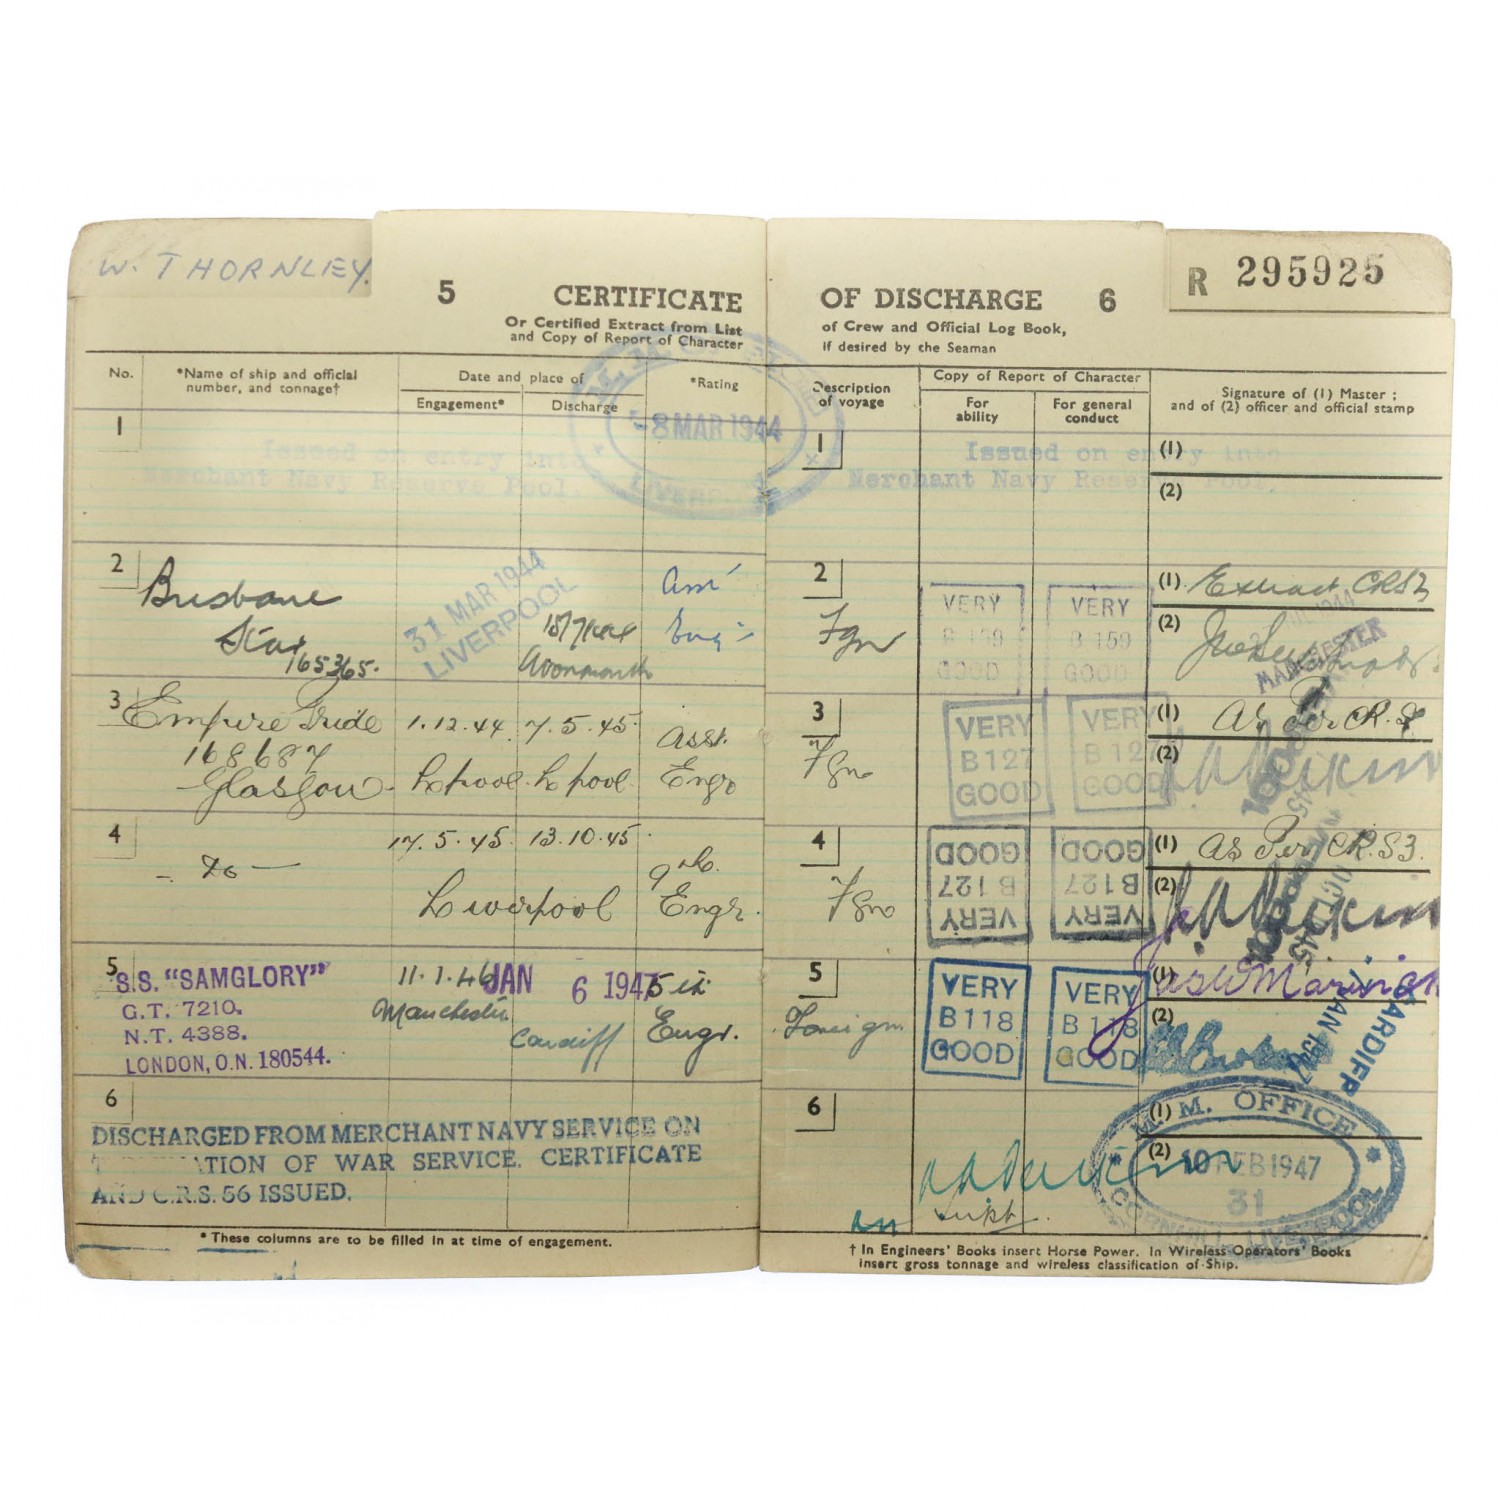 W. THORNLEY.
5 CERTIFICATE
Or Certified Extract from List
and Copy of Report of Character
No.
*Name of ship and official
number, and tonnage†
Date and place of
Engagement*
Discharge
*Rating
1
Issued on entry into
Merchant Navy Reserve Pool.
-8 MAR 1944
2
Brisbane
Star
165365.
31 MAR 1944
LIVERPOOL
Avonmouth
3
Empire
168687
Glasgow
1.12.44
7.5.45
L'pool
L'pool
Asst.
Engr
4
17.5.45
13.10.45
Liverpool
Engr.
5
S.S. "SAMGLORY"
G.T. 7210.
N.T. 4388.
LONDON, O.N. 180544.
11.1.46
Manchester
JAN 6 1947
Cardiff
5th
Engr.
6
DISCHARGED FROM MERCHANT NAVY SERVICE ON
ATION OF WAR SERVICE. CERTIFICATE
AND C.R.S. 56 ISSUED.
* These columns are to be filled in at time of engagement.
R 295925
OF DISCHARGE 6
of Crew and Official Log Book,
if desired by the Seaman
Description
of voyage
Copy of Report of Character
For
ability
For general
conduct
Signature of (1) Master ;
and of (2) officer and official stamp
1
Issued on entry into
Merchant Navy Reserve Pool.
(1)
(2)
2
Fgn
VERY
B 159
GOOD
VERY
B 159
GOOD
(1) Extract CRS
(2)
MANCHESTER
3
Fgn
VERY
B 127
GOOD
VERY
B 127
GOOD
(1) As Per CR.S
(2)
4
Fgn
VERY
B 127
GOOD
VERY
B 127
GOOD
(1) As Per CR.S3.
(2)
5
Foreign
VERY
B 118
GOOD
VERY
B 118
GOOD
(1)
(2)
CARDIFF
JAN 1947
6
(1)
(2)
M.M. OFFICE
10 FEB 1947
31
CORNHILL, LIVERPOOL
Supt.
† In Engineers' Books insert Horse Power. In Wireless Operators' Books
insert gross tonnage and wireless classification of Ship.